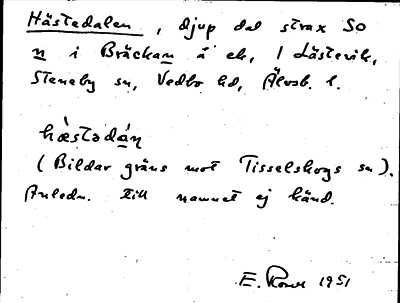 Hästedalen, djup dal strax SO
n i Bräckan å ek, 1 Låstevik,
Steneby sn, Vedbo hd, Älvsb. l.
hæ̀stədán
(Bildar gräns mot Tisselskogs sn).
Anledn. till namnet ej känd.
E. 1951